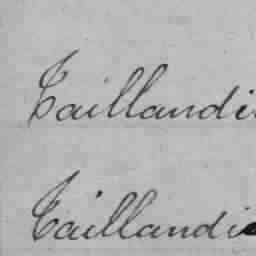 Taillandi
Taillandi